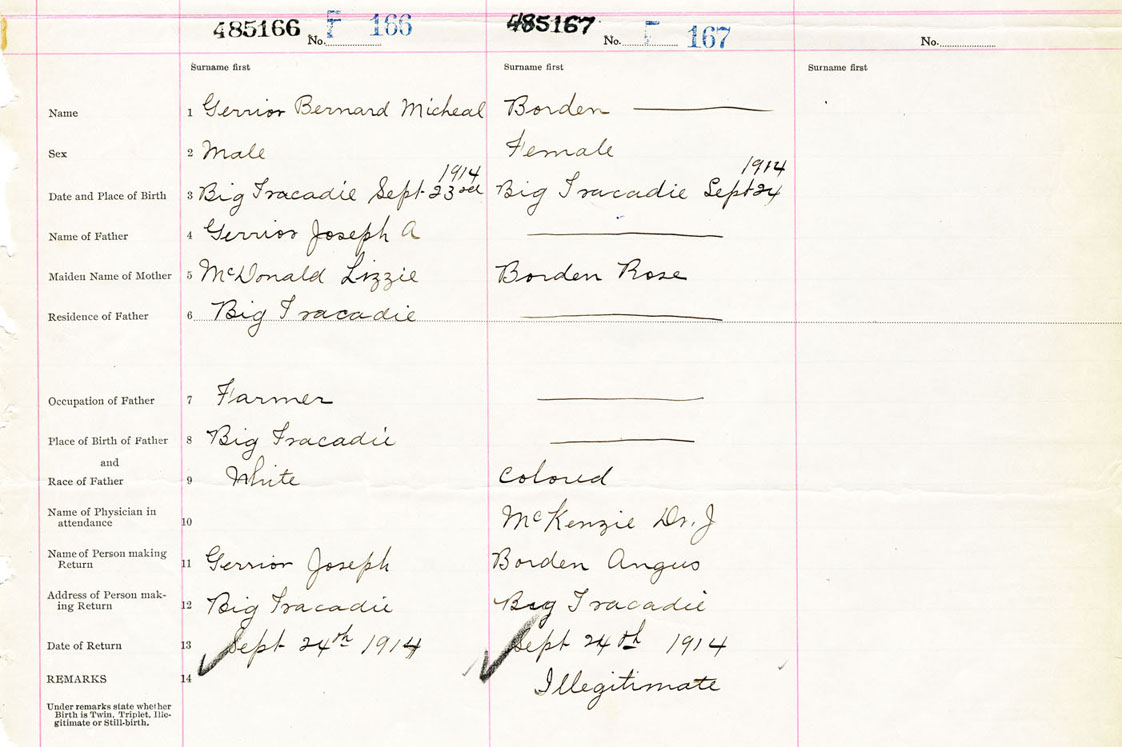 485166 No. F 166 485167 No. F 167 No.
Surname first Surname first Surname first
Name 1 Gerrior Bernard Micheal Borden
Sex 2 Male Female
1914 1914
Date and Place of Birth 3 Big Tracadie Sept 23rd Big Tracadie Sept 24
Name of Father 4 Gerrior Joseph A
Maiden Name of Mother 5 McDonald Lizzie Borden Rose
Residence of Father 6 Big Tracadie
Occupation of Father 7 Farmer
Place of Birth of Father 8 Big Tracadie
and
Race of Father 9 White Colored
Name of Physician in
attendance 10 McKenzie Dr. J
Name of Person making
Return 11 Gerrior Joseph Borden Angus
Address of Person mak-
ing Return 12 Big Tracadie Big Tracadie
Date of Return 13 Sept 24th 1914 Sept 24th 1914
REMARKS 14 Illegitimate
Under remarks state whether
Birth is Twin, Triplet, Ille-
gitimate or Still-birth.